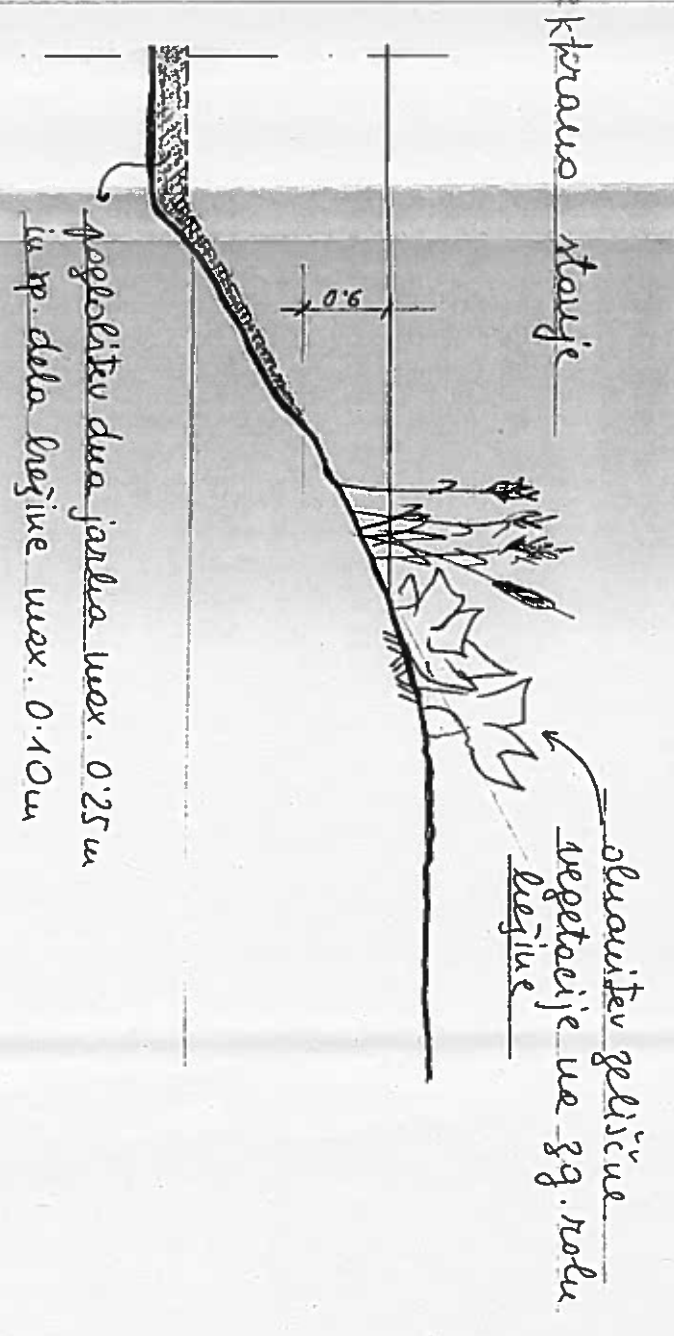 stanje
ohranitev zeliščne
vegetacije na zg. robu
brežine
0.6
poglobitev dna jarka max. 0'25 m
in sp. dela brežine max. 0.10 m